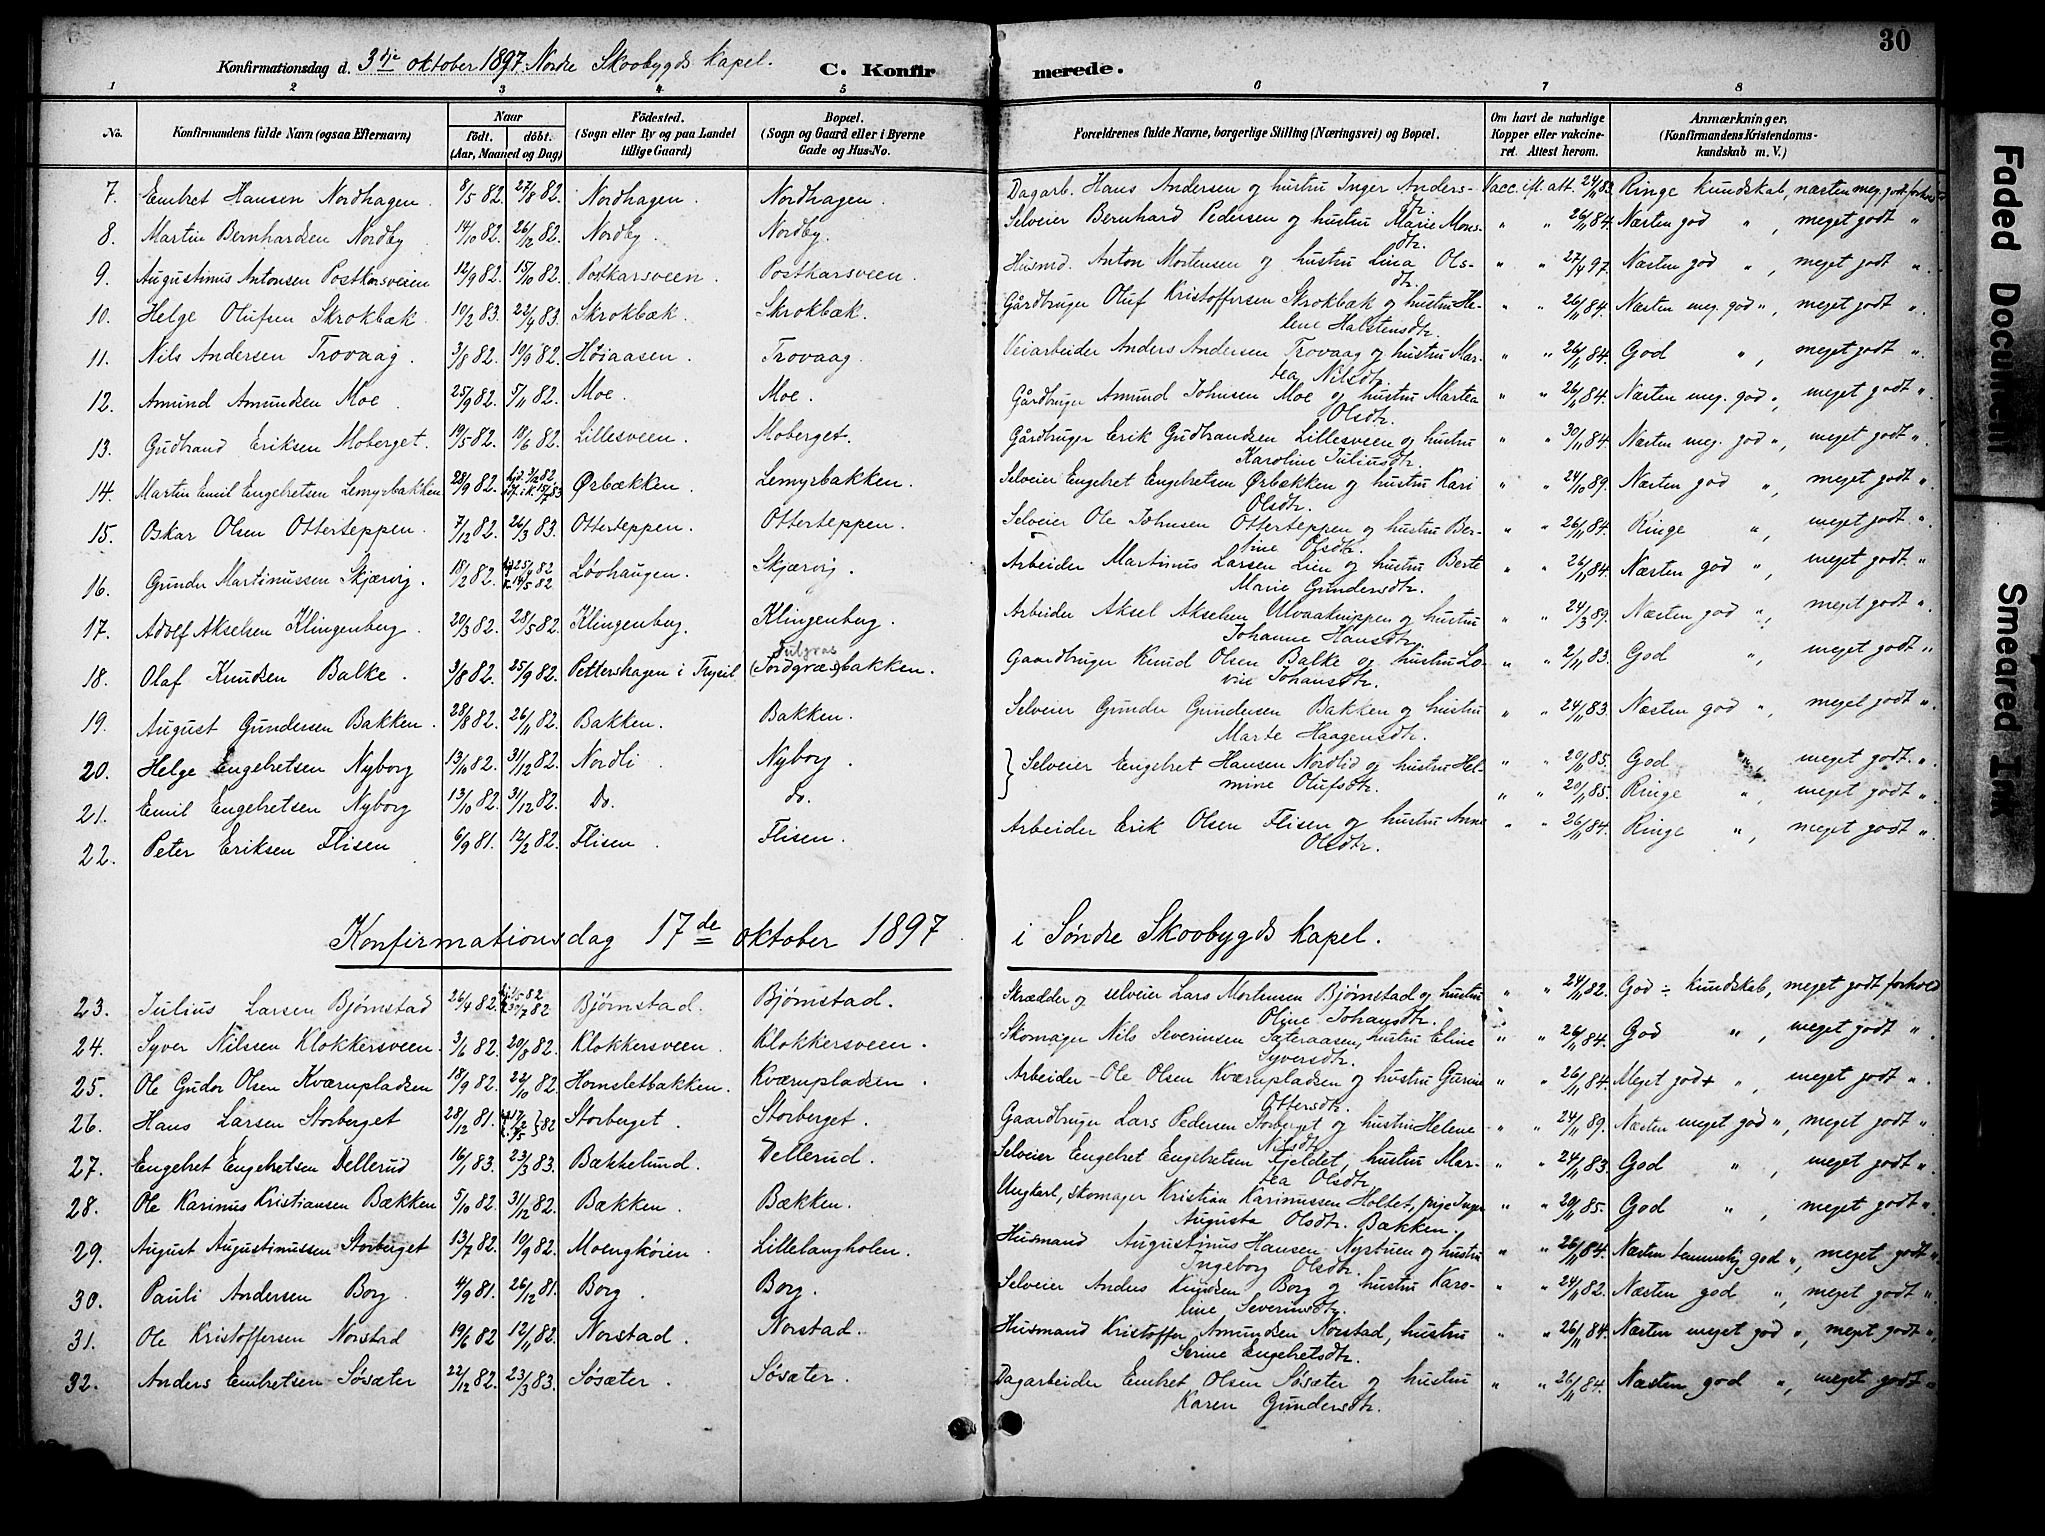 30
Konfirmationsdag d. 3dje oktober 1897. Nordre Skovbygds kapel. C. Konfirmerede.
1 2 3 4 5 6 7 8
No. Konfirmandens fulde Navn (ogsaa Efternavn) Naar født. døbt. (Aar, Maaned og Dag) Fødested. (Sogn eller By og paa Landet tillige Gaard) Bopæl. (Sogn og Gaard eller i Byerne Gade og Hus-No. Forældrenes fulde Navne, borgerlige Stilling (Næringsvei) og Bopæl. Om havt de naturlige Kopper eller vakcineret. Attest herom. Anmærkninger. (Konfirmandens Kristendomskundskab m. V.)
7. Embret Hansen Nordhagen. 8/5 82. 27/8 82. Nordhagen. Nordhagen. Dagarb. Hans Andersen og hustru Inger Andersdtr. Vacc. ifl. att. 24/11 83. Ringe kundskab, næsten meg. godt forhold
8. Martin Bernhardsen Nordby. 14/10 82. 26/12 82. Nordby. Nordby. Selveier Bernhard Pedersen og hustru Marie Monsdtr. " " 26/11 84. Næsten god ", meget godt "
9. Augustinus Antonsen Postkarsveien 12/9 82. 15/10 82. Postkarsveen. Postkarsveen. Husmd. Anton Mortensen og hustru Lina Olsdtr. " " 27/4 97. Næsten god ", meget godt ".
10. Helge Olufsen Skrokbæk. 10/2 83. 22/4 83. Skrokbæk. Skrokbæk. Gårdbruger Oluf Kristoffersen Skrokbæk og hustru Helene Halstensdtr. " " 26/11 84. Næsten meg. god ", meget godt ".
11. Nils Andersen Trovaag. 3/8 82. 10/9 82. Høiaasen. Trovaag. Veiarbeider Anders Andersen Trovaag og hustru Martea Nilsdtr. " " 26/11 84. God ", meget godt ".
12. Amund Amundsen Moe. 25/9 82. 5/11 82. Moe. Moe. Gårdbruger Amund Johnsen Moe og hustru Martea Olsdtr. " " 26/11 84. Næsten meg. god ", meget godt ".
13. Gudbrand Eriksen Moberget. 19/5 82. 19/6 82. Lillesveen. Moberget. Gårdbruger Erik Gudbrandsen Lillesveen og hustru Karoline Juliusdtr. " " 30/11 84. Næsten meg. god ", meget godt ".
14. Martin Emil Engebretsen Lemyrbakken 28/9 82. hjd. 3/12 82 i k. 15/7 83 Ørbækken. Lemyrbakken. Selveier Engebret Engebretsen Ørbækken og hustru Kari Olsdtr. " " 24/10 89. Næsten god ", meget godt ".
15. Oskar Olsen Otterteppen. 7/12 82. 26/3 83. Otterteppen. Otterteppen. Selveier Ole Johnsen Otterteppen og hustru Bertine Olsdtr. " " 26/11 84. Ringe ", meget godt ".
16. Gunder Martinussen Skjærvig. 18/2 82. 25/4 82 14/5 82 Løvhaugen. Skjærvig. Arbeider Martinus Larsen Lien og hustru Berte Marie Gundersdtr. " " 26/11 84. Næsten god ", meget godt. "
17. Adolf Akselsen Klingenberg. 20/3 82. 28/5 82. Klingenberg. Klingenberg. Arbeider Aksel Akselsen Ulvaaknippen og hustru Johanne Hansdtr. " " 24/3 89. Næsten god ", meget godt ".
18. Olaf Knudsen Balke. 3/8 82. 25/9 82. Pettershagen i Trysil (Tordgræs)bakken. Gaardbruger Knud Olsen Balke og hustru Lovise Johansdtr. " " 2/11 83. God ", meget godt "
19. August Gundersen Bakken. 28/8 82. 26/11 82. Bakken. Bakken. Selveier Gunder Gundersen Bakken og hustru Marte Haagensdtr. " " 24/11 83. Næsten god ", meget godt ".
20. Helge Engebretsen Nyborg 13/10 82. 31/12 82. Nordli. Nyborg. } Selveier Engebret Hansen Nordlid og hustru Helmine Olufsdtr. " " 20/11 85. God , meget godt ".
21. Emil Engebretsen Nyborg 13/10 82. 31/12 82. Do. do. " " 20/11 85. Ringe ", meget godt ".
22. Peter Eriksen Flisen 6/9 81. 12/2 82. Flisen. Flisen. Arbeider Erik Olsen Flisen og hustru Anne Olsdtr. " " 26/11 84. Ringe ", meget godt ".
Konfirmationsdag 17de oktober 1897 i Søndre Skovbygds kapel.
23. Julius Larsen Bjørnstad 26/4 82. 82 7 82 Bjørnstad. Bjørnstad. Skrædder og selveier Lars Mortensen Bjørnstad og hustru Oline Johansdtr. " " 24/11 82. God ÷ kundskab, meget godt forhold
24. Syver Nilssen Klokkersveen. 3/6 82. 20/8 82. Klokkersveen. Klokkersveen. Skomager Nils Severinsen Sæteraasen, hustru Eline Syversdtr. " " 26/11 84. God ", meget godt ".
25. Ole Gudor Olsen Kværnpladsen 18/9 82. 22/10 82. Hornsletbakken. Kværnpladsen. Arbeider Ole Olsen Kværnpladsen og hustru Gurine Ottersdtr. " " 26/11 84. Meget god + ", meget godt ".
26. Hans Larsen Storberget 28/12 81. 82 Storberget. Storberget. Gaardbruger Lars Pedersen Storberget og hustru Helene Nilsdtr. " " 24/11 89. Næsten meget god ", meget godt ".
27. Engebret Engebretsen Dellerud 16/1 83. 23/3 83. Bækkelund. Dellerud. Selveier Engebret Engebretsen Fjeldet, hustru Martea Olsdtr. " " 24/11 83. God ", meget godt ".
28. Ole Karinus Kristiansen Bækken 5/10 82. 31/12 82. Bækken. Bækken. Ungkarl, skomager Kristian Karinussen Holtet, pige Inger Augusta Olsdtr. Bækken. " " 20/11 85. God ", meget godt ".
29. August Augustinussen Storberget 13/7 82. 10/9 82. Moengkøien. Lillelangholen. Husmand Augustinus Hansen Nystuen og hustru Ingeborg Olsdtr. " " 26/11 84. Næsten temmelig god ", meget godt ".
30. Pauli Andersen Borg. 4/9 81. 26/12 81. Borg. Borg. Selveier Anders Knudsen Borg og hustru Karoline Severinsdtr. " " 24/11 82. Næsten god ", meget godt ".
31. Ole Kristoffersen Norstad 19/6 82. 12/11 82. Norstad. Norstad. Husmand Kristoffer Amundsen Norstad, hustru Serine Engebretsdtr. " " 26/11 84. Næsten meget god ", meget godt ".
32. Anders Embretsen Søsæter 22/12 82. 23/3 83. Søsæter. Søsæter. Dagarbeider Embret Olsen Søsæter og hustru Karen Gundersdtr. " " 26/11 84. Næsten god ", meget godt "
Faded Document
Smeared Ink